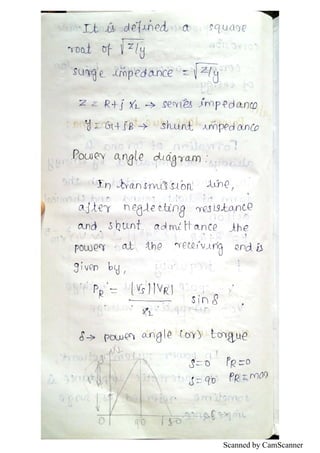 It is defined a square
root of √z/y
surge impedance = √z/y
Z = R+j XL → series impedance
y = G+jB → shunt impedance
Power angle diagram:
In transmission line,
after neglecting resistance
and shunt admittance the
power at the receiving end is
given by,
PR = |VS||VR|
XL
sin δ
δ → power angle (or) torque
δ=0 PR=0
δ=90 PR=max
0 90 180
Scanned by CamScanner